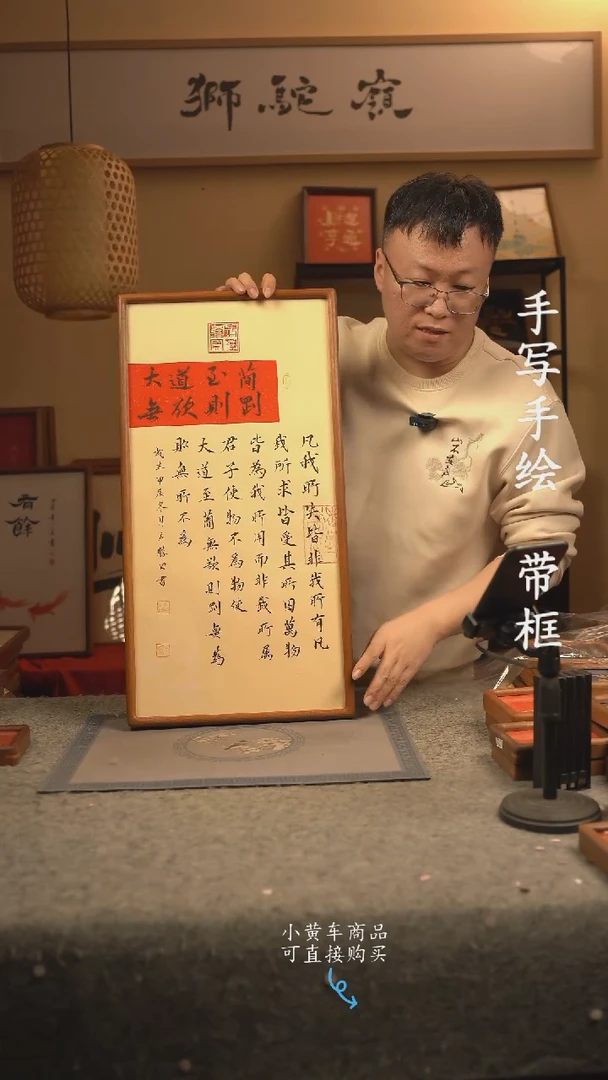 獅駝嶺
手写手绘 带框
大道至简
無欲則剛
凡我所失皆非我所有凡
我所求皆受其所困萬物
皆為我所用而非我所屬
君子使物不為物使
大道至簡無欲則剛無為
無所不為
有餘
小黄车商品
可直接购买